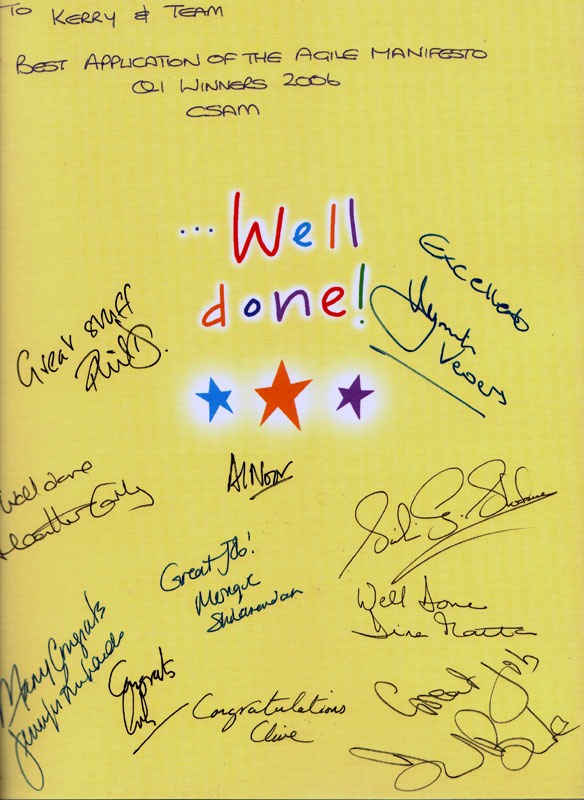 TO KERRY & TEAM
BEST APPLICATION OF THE AGILE MANIFESTO
Q1 WINNERS 2006
CSAM
...Well
done!
Excellent
Great stuff
Phil
Well done
Heather
AlNoor
Great Job!
Well done
Many Congrats
Jennifer
Congrats
Congratulations
Clive
Great Job